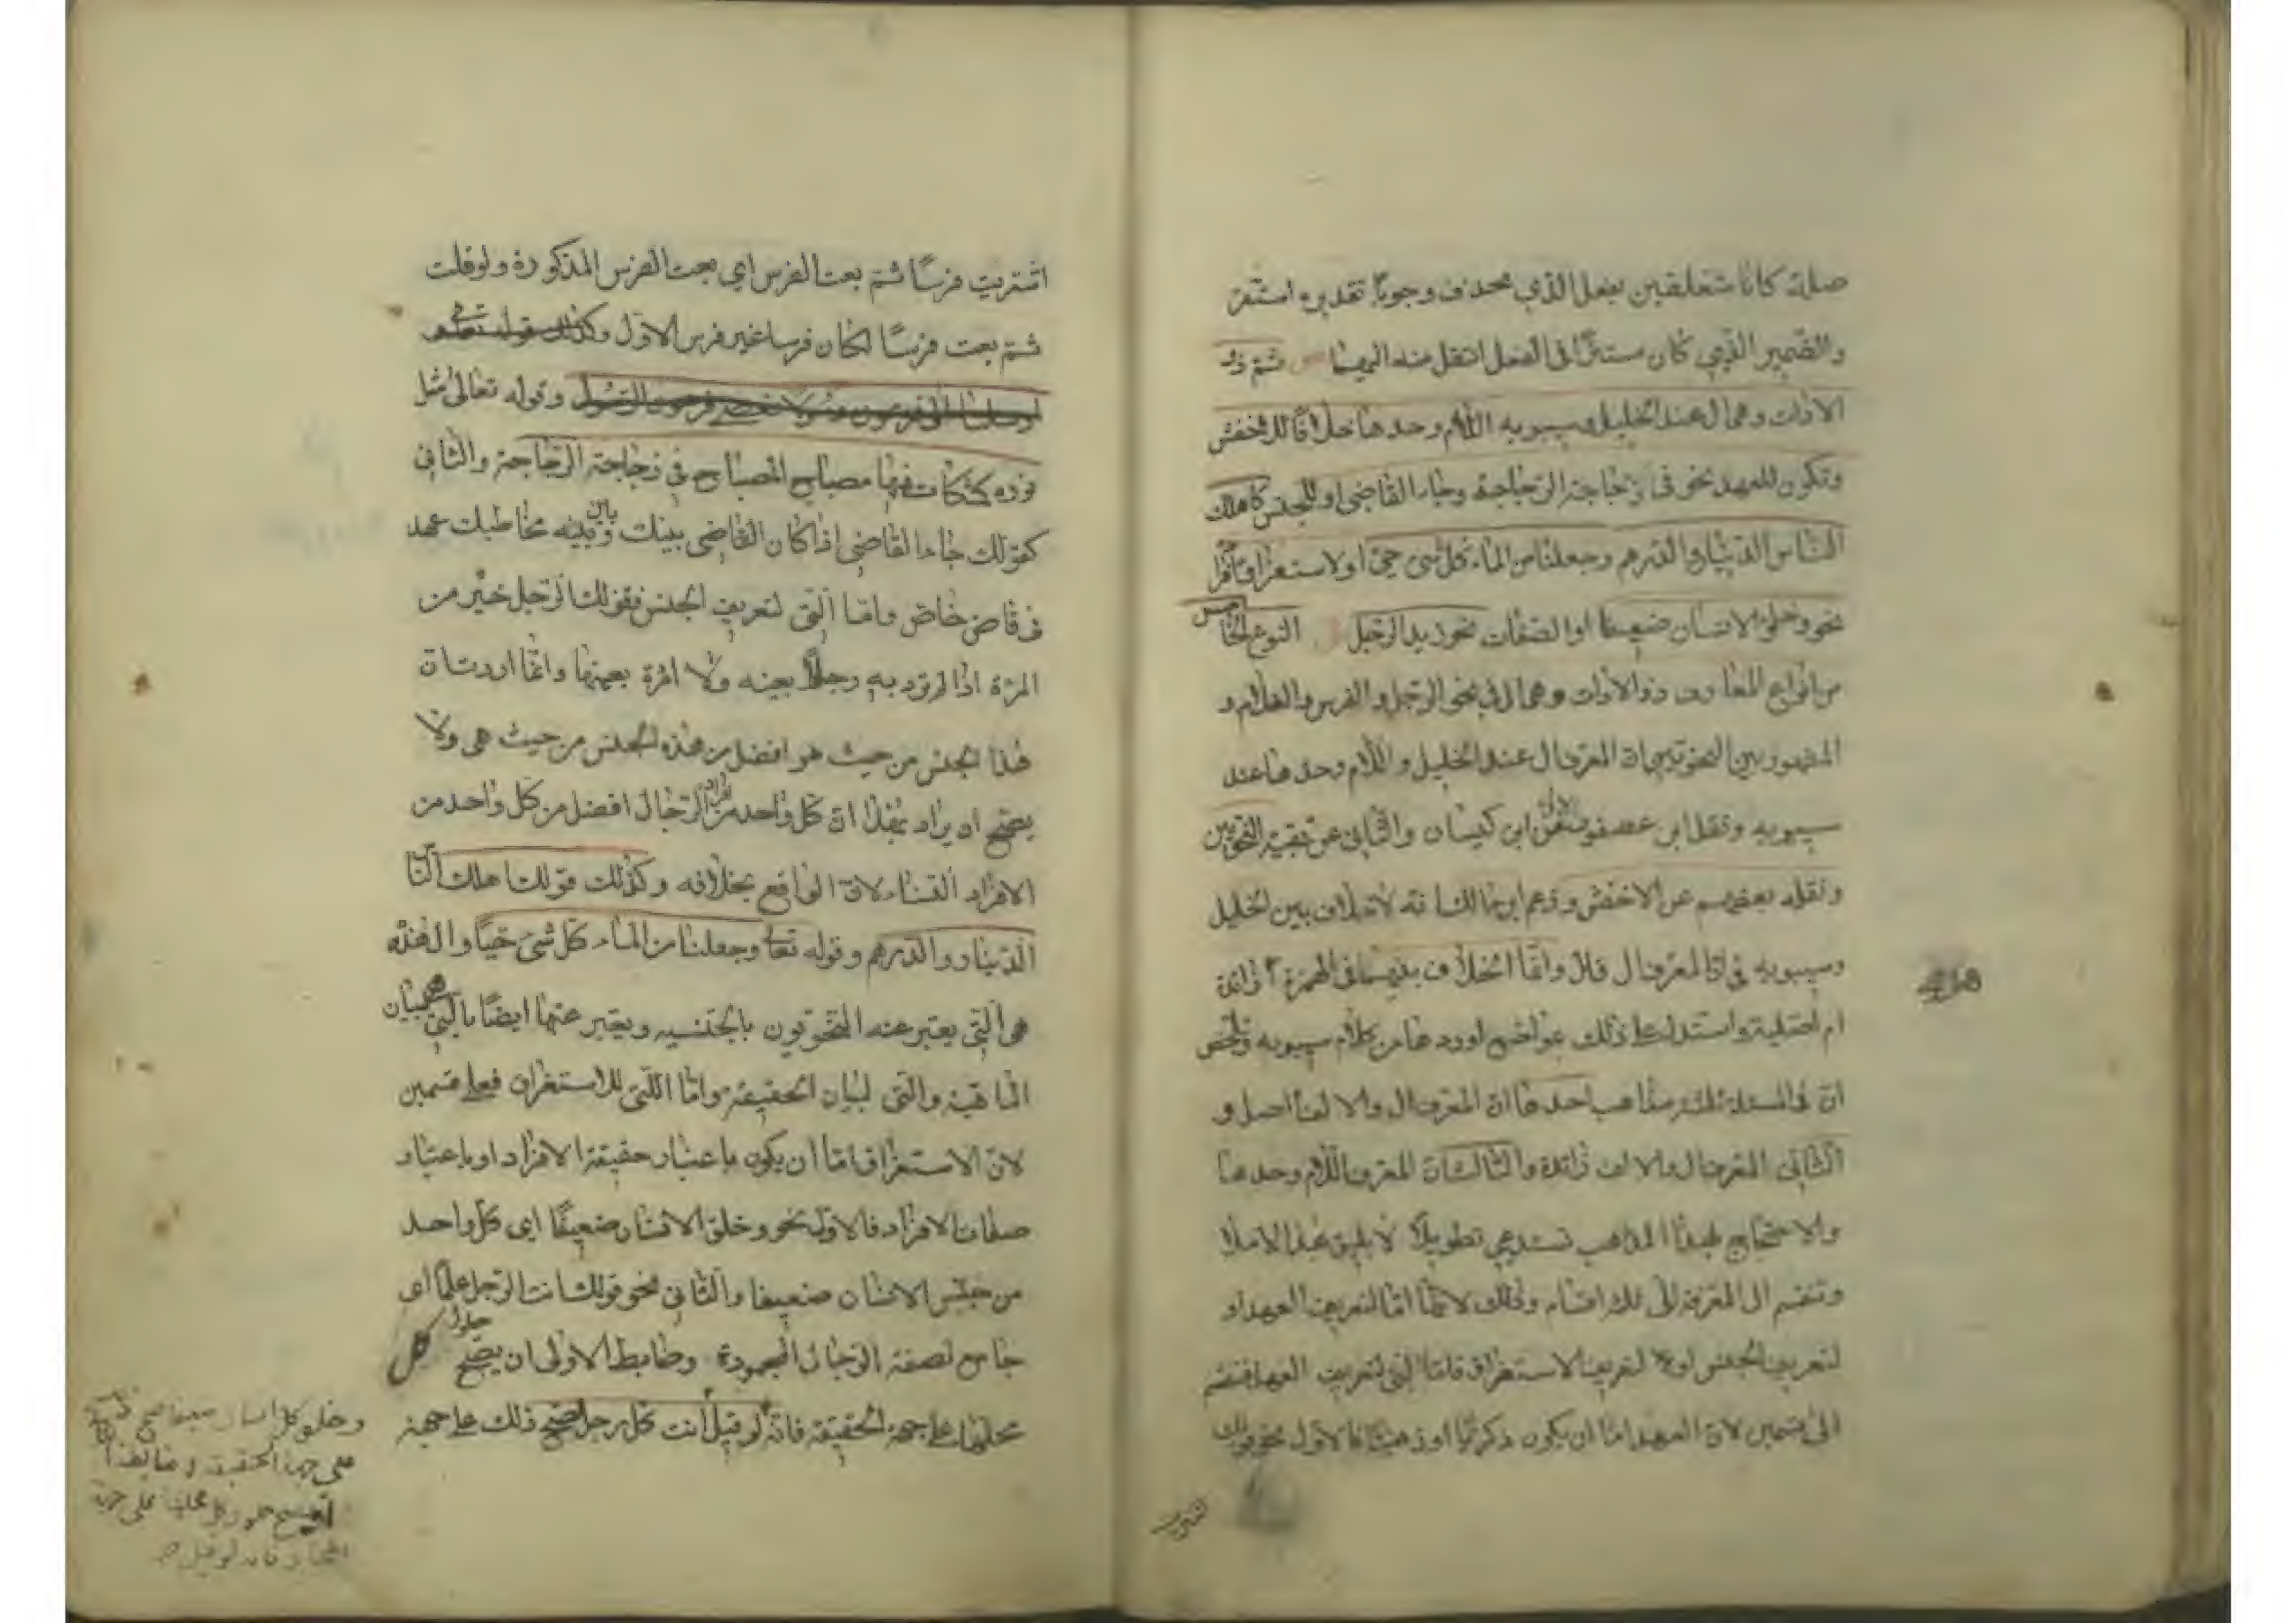 صلة كانا متعلقين بفعل الذي محذوف وجوبا تقديره استقر
والضمير الذي كان مستترا في الفعل انتقل منه اليهما ثم ذو
الاداة وهي ال عند الخليل وسيبويه اللام وحدها خلافا للاخفش
وتكون للعهد نحو في زجاجة الزجاجة وجاء القاضي او للجنس كاهلك
الناس الدينار والدرهم وجعلنا من الماء كل شئ حي او لاستغراق افراد
نحو وخلق الانسان ضعيفا او الصفات نحو زيد الرجل النوع الخامس
من انواع المعارف ذو الاداة وهي ال في نحو الرجل والفرس والغلام و
المشهور بين النحويين ان المعرف ال عند الخليل واللام وحدها عند
سيبويه ونقل ابن عصفور الاول عن ابن كيسان والثاني عن بقية النحويين
ونقله بعضهم عن الاخفش وزعم ابن مالك انه لا خلاف بين الخليل
وسيبويه في ان المعرف ال قال وانما الخلاف بينهما في الهمزة ازائدة
ام اصلية واستدل على ذلك بمواضع اوردها من كلام سيبويه وتلخص
ان في المسئلة ثلث مذاهب احدها ان المعرف ال والالف اصل و
الثاني المعرف ال والالف زائدة والثالث ان المعرف اللام وحدها
والاحتجاج لهذا المذاهب تستدعي تطويلا لا يليق بهذا الاملا
وتنقسم ال المعرفة الى ثلث اقسام وذلك لانها اما لتعريف العهد او
لتعريف الجنس او لتعريف الاستغراق فاما التي لتعريف العهد فتنقسم
الى قسمين لان العهد اما ان يكون ذكريا او ذهنيا فالاول نحو قولك
اشتريت فرسا ثم بعت الفرس اي بعت الفرس المذكورة ولو قلت
ثم بعت فرسا لكان فرسا غير فرس الاول وكذلك قوله تعالى
ارسلنا الى فرعون رسولا فعصى فرعون الرسول وقوله تعالى مثل
نوره كمشكاة فيها مصباح المصباح في زجاجة الزجاجة والثاني
كقولك جاء القاضي اذا كان القاضي بينك وبين مخاطبك عهد
في قاض خاص واما التي لتعريف الجنس فقولك الرجل خير من
المرأة اذا لم ترد به رجلا بعينه ولا امرأة بعينها وانما اردت ان
هذا الجنس من حيث هو افضل من هذه الجنس من حيث هي ولا
يصح ان يراد بهذا ان كل واحد من الرجال افضل من كل واحد من
الافراد النساء لان الواقع بخلافه وكذلك قولك اهلك الناس
الدينار والدرهم وقوله تعا وجعلنا من الماء كل شئ حيا وال هذه
هي التي يعتبر عنه النحويون بالجنسيه ويعتبر عنها ايضا بالتي هي لبيان
الماهية والتي لبيان الحقيقة واما اللتي للاستغراق فعلى قسمين
لان الاستغراق اما ان يكون باعتبار حقيقة الافراد او باعتبار
صفات الافراد فالاول نحو وخلق الانسان ضعيفا اي كل واحد
من جنس الانسان ضعيفا والثاني نحو قولك انت الرجل علما اي
جامع لصفة الرجال المحمودة وضابط الاولى ان يصح حلول كل
محلها على جهة الحقيقة فانه لو قيل انت كل رجل لصح ذلك على جهة
وخلق كل انسان ضعيفا صح
على جهة الحقيقة وضابط
يصح حلول كل محلها على جهة
المجاز فانه لو قيل